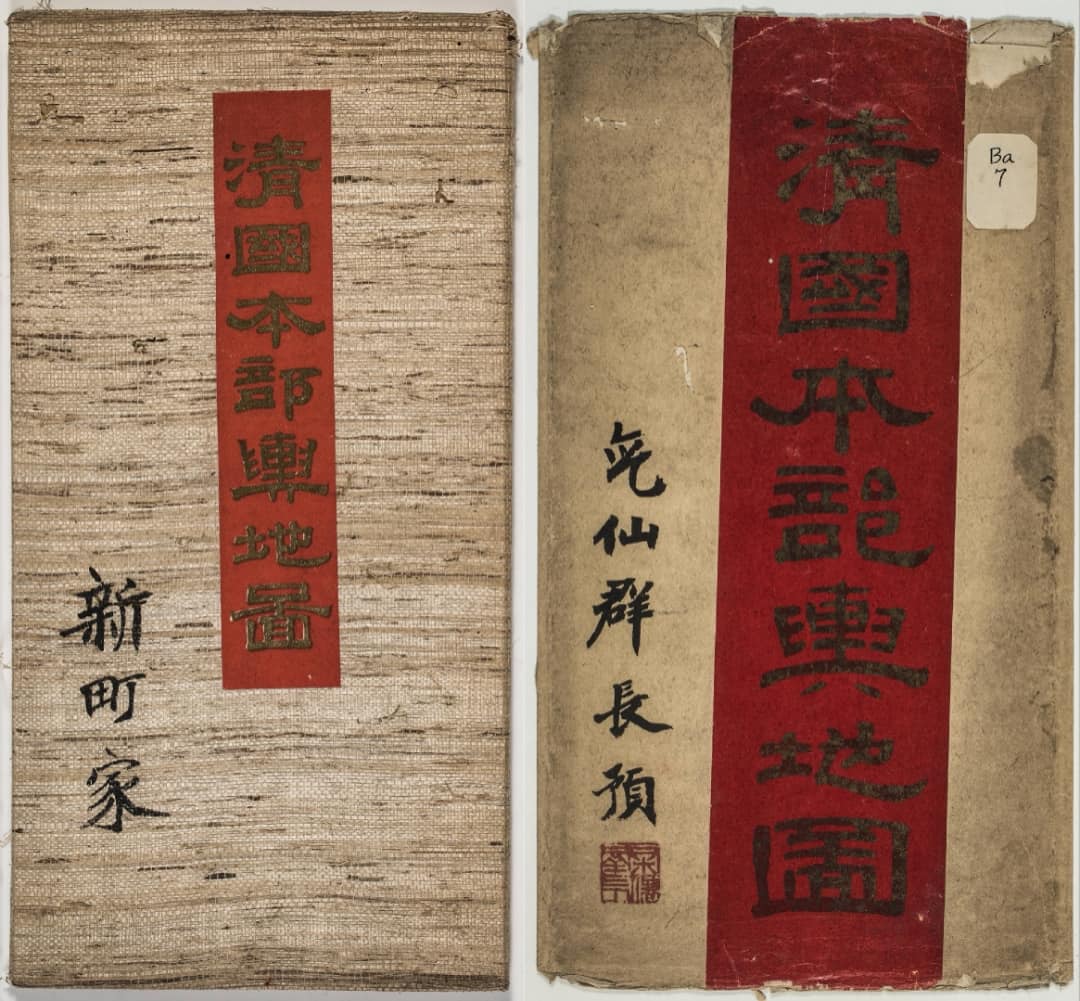 清國本部輿地圖
新町家
Ba
7
清國本部輿地圖
気仙群長預